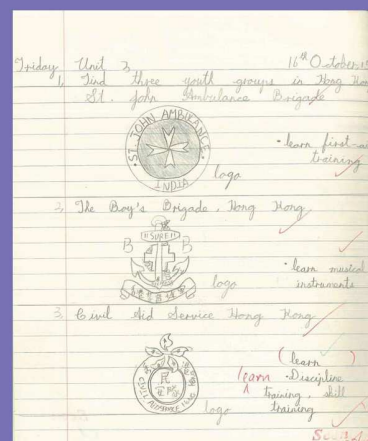 Friday Unit 3 16th October
1, Find three youth groups in Hong
St. John Ambulance Brigade
ST. JOHN AMBULANCE
INDIA
logo
• learn first-
training
2, The Boy's Brigade, Hong Kong
"SURE"
B B
logo
• learn musical
instruments
3, Civil Aid Service Hong Kong
(learn )
learn • Discipline
training, skill
training
民
logo